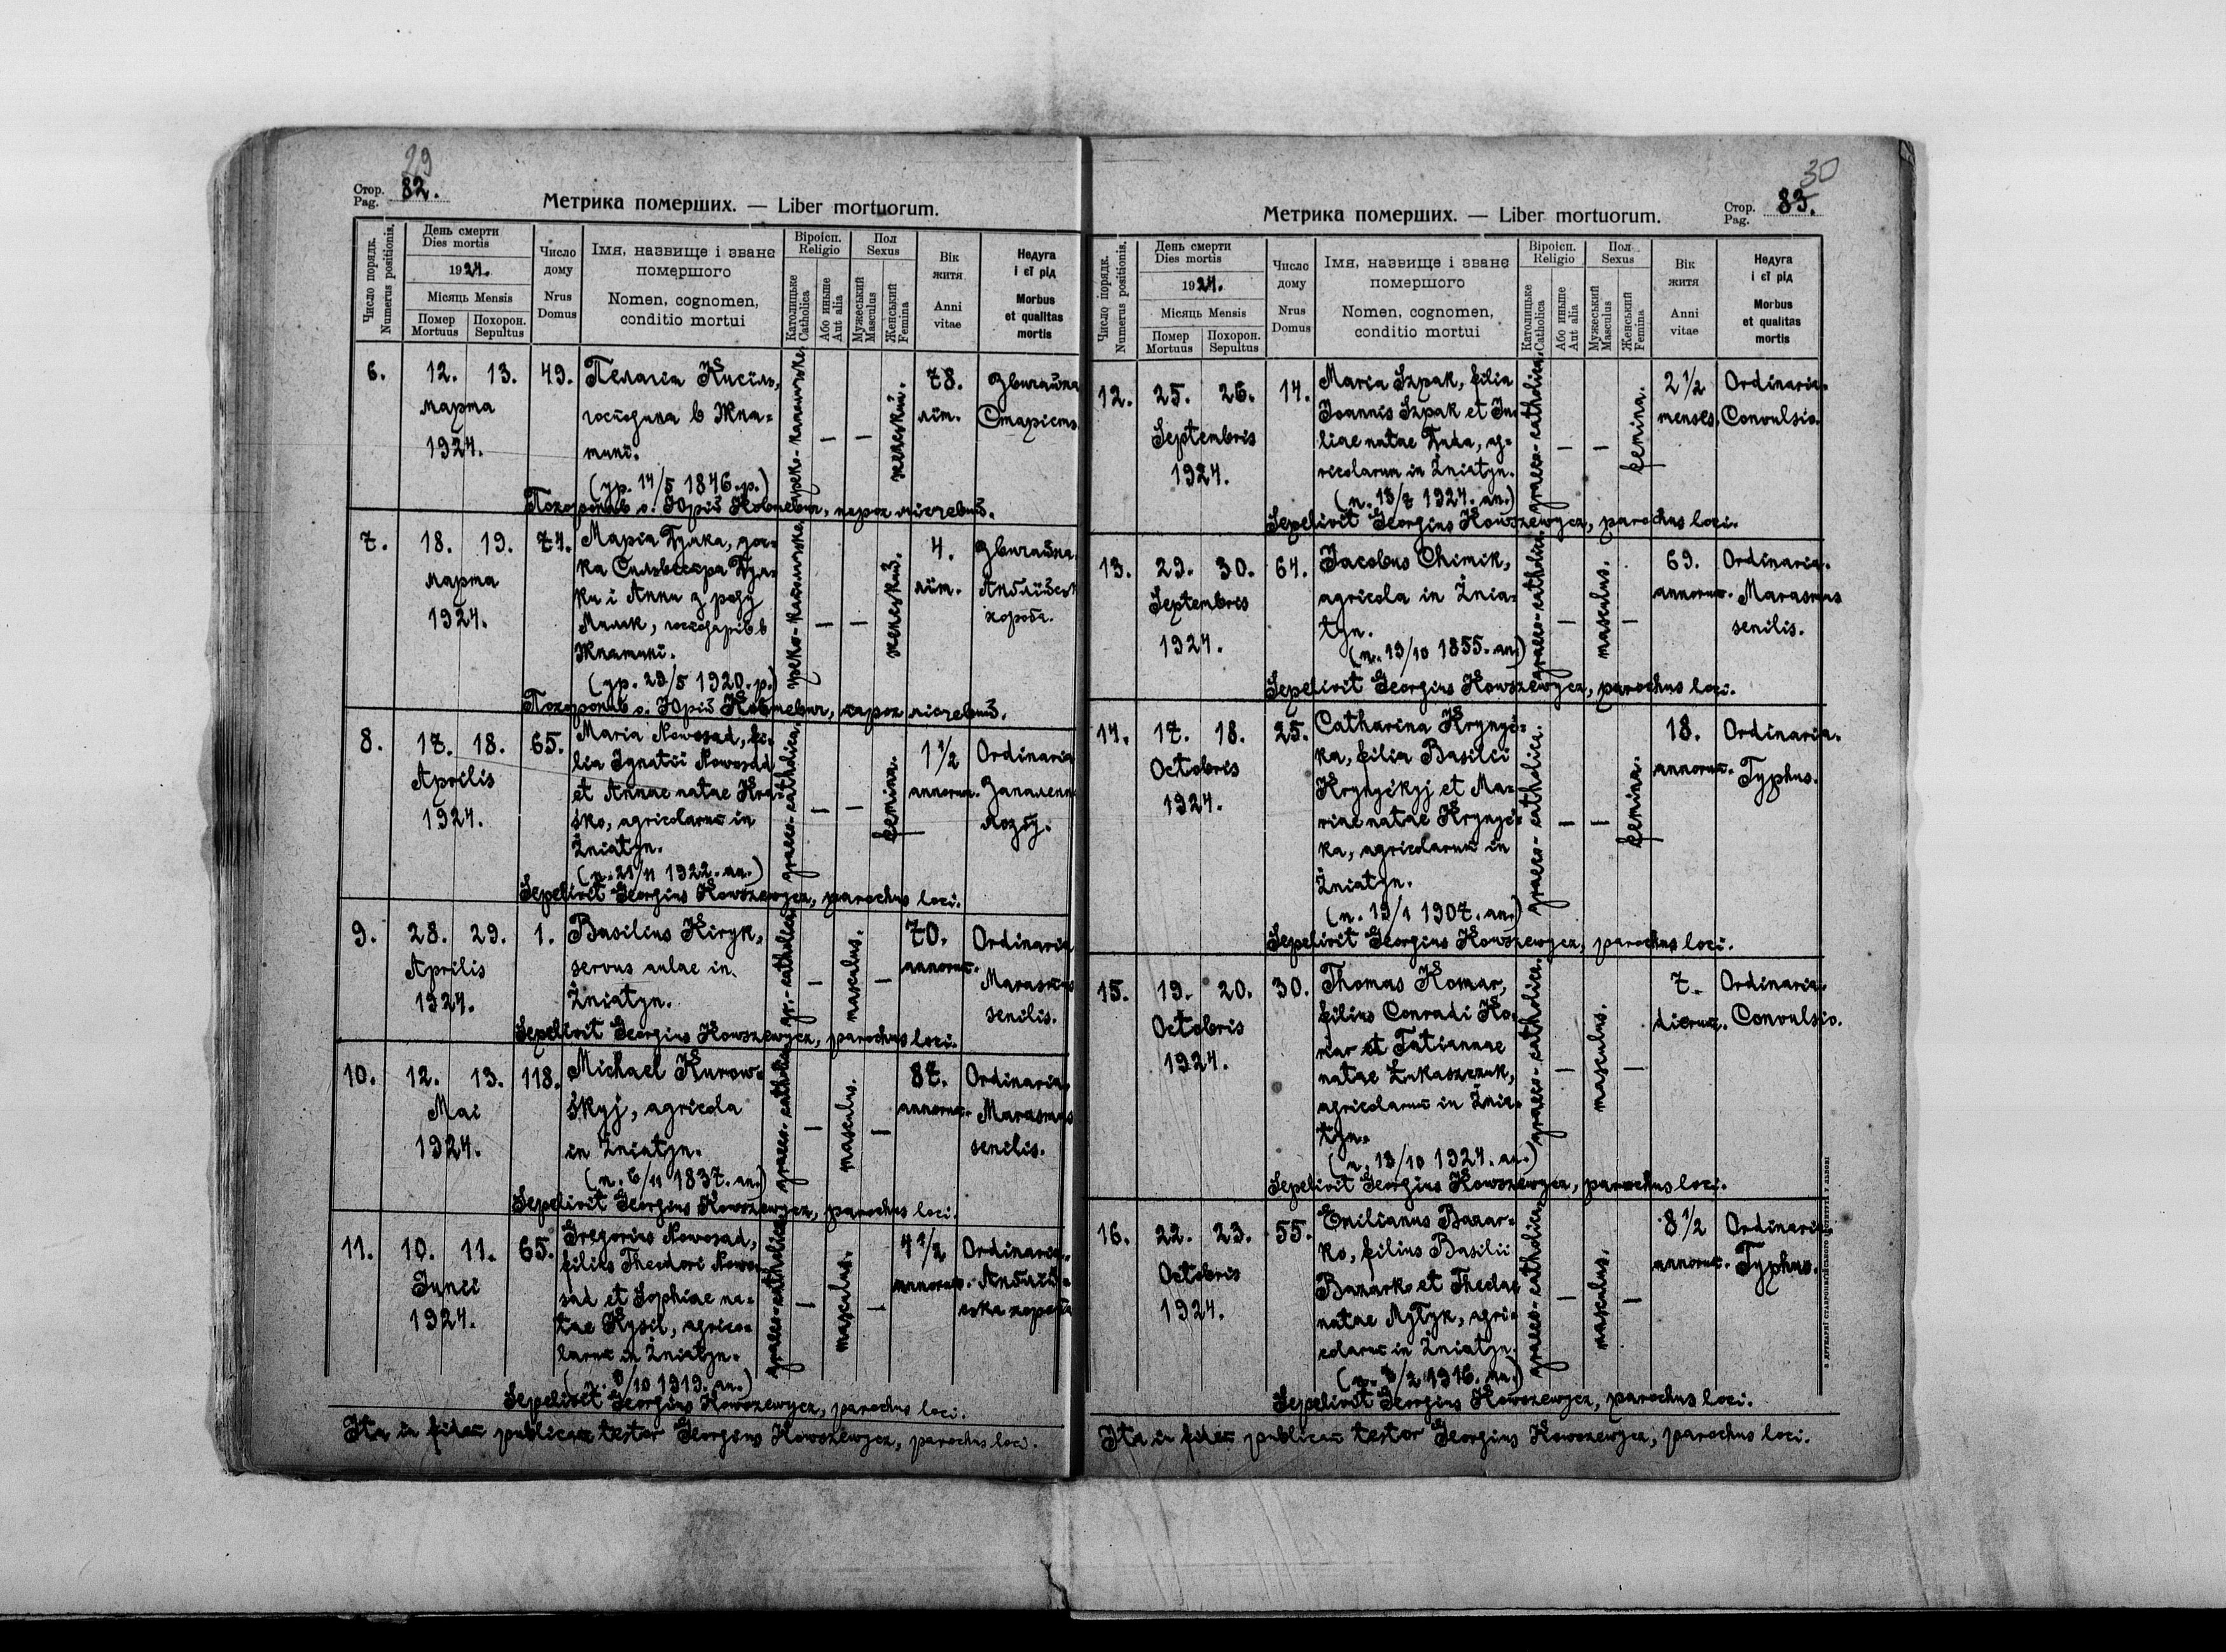 29
Стор.
Pag.
82.
Метрика померших. — Liber mortuorum.
Число порядк.
Numerus positionis.
День смерти
Dies mortis
1924.
Місяць Mensis
Помер
Mortuus
Похорон.
Sepultus
Число
дому
Nrus
Domus
Імя, назвище і зване
помершого
Nomen, cognomen,
conditio mortui
Віроісп.
Religio
Католицьке
Catholica
Або инынe
Aut alia
Пол
Sexus
Мужеський
Masculus
Женський
Femina
Вік
житя
Anni
vitae
Недуга
і єї рід
Morbus
et qualitas
mortis
6.
12. 13.
марта
1924.
49.
Пелагія Кисіль,
господиня в Жня-
тині.
(ур. 14/5 1846. р.)
греко-католицьке
—
—
женський.
78.
літ.
Звичайна
Старість
Похоронив о. Юрій Ковшевич, парох місцевий.
7.
18. 19.
марта
1924.
74.
Марія Дудка, доч-
ка Сильвестра Дуд-
ки і Анни з роду
Милик, господарів в
Жнятині.
(ур. 29/5 1920. р.)
греко-католицьке
—
—
женський.
4.
літ.
Звичайна.
Англійськ
хороба.
Похоронив о. Юрій Ковшевич, парох місцевий.
8.
17. 18.
Aprilis
1924.
65.
Maria Nowosad, fi-
lia Ignatii Nowosad
et Annae natae Hra-
śko, agricolarum in
Żniatyn.
(n. 21/11 1922. an.)
graeco-catholica.
—
—
femina.
1 1/2
annorum.
Ordinaria
Запаленн
лозїў.
Sepelivit Georgius Kowszewycz, parochus loci.
9.
28. 29.
Aprilis
1924.
1.
Basilius Kiryk,
servus aulae in
Żniatyn.
gr.-catholica
—
masculus.
—
70.
annorum.
Ordinaria
Marasmus
senilis.
Sepelivit Georgius Kowszewycz, parochus loci.
10.
12. 13.
Mai
1924.
118.
Michael Kurow-
śkyj, agricola
in Żniatyn.
(n. 6/11 1837. an.)
graeco-catholica
—
masculus.
—
87.
annorum.
Ordinaria
Marasmus
senilis.
Sepelivit Georgius Kowszewycz, parochus loci.
11.
10. 11.
Junii
1924.
65.
Gregorius Nowosad,
filius Theodori Nowo-
sad et Sophiae na-
tae Kysil, agrico-
larum in Żniatyn.
/10 1919. an.)
graeco-catholica
—
masculus.
—
4 1/2
annorum.
Ordinaria.
Англій-
ська хороба
Sepelivit Georgius Kowszewycz, parochus loci.
Ita in fidem publicam testor Georgius Kowszewycz, parochus loci.
30
Стор.
Pag.
83.
Метрика померших. — Liber mortuorum.
Число порядк.
Numerus positionis.
День смерти
Dies mortis
1924.
Місяць Mensis
Помер
Mortuus
Похорон.
Sepultus
Число
дому
Nrus
Domus
Імя, назвище і зване
помершого
Nomen, cognomen,
conditio mortui
Віроісп.
Religio
Католицьке
Catholica
Або инынe
Aut alia
Пол
Sexus
Мужеський
Masculus
Женський
Femina
Вік
житя
Anni
vitae
Недуга
і єї рід
Morbus
et qualitas
mortis
12.
25. 26.
Septembris
1924.
14.
Maria Szpak, filia
Joannis Szpak et Ju-
liae natae Duda, ag-
ricolarum in Żniatyn.
(n. 13/7 1924. an.)
graeco-catholica.
—
—
femina.
2 1/2
menses.
Ordinaria.
Convulsio.
Sepelivit Georgius Kowszewycz, parochus loci.
13.
29. 30.
Septembris
1924.
64.
Jacobus Chimik,
agricola in Żnia-
tyn.
(n. 19/10 1855. an.)
graeco-catholica.
—
masculus.
—
69.
annorum.
Ordinaria.
Marasmus
senilis.
Sepelivit Georgius Kowszewycz, parochus loci.
14.
17. 18.
Octobris
1924.
25.
Catharina Hrynyć-
ka, filia Basilii
Hrynyćkyj et Ma-
riae natae Hrynyć-
ka, agricolarum in
Żniatyn.
(n. 19/1 1907. an.)
graeco-catholica.
—
—
femina.
18.
annorum.
Ordinaria.
Typhus.
Sepelivit Georgius Kowszewycz, parochus loci.
15.
19. 20.
Octobris
1924.
30.
Thomas Komar,
filius Conradi Ko-
mar et Tatiannae
natae Łukaszczuk,
agricolarum in Żnia-
tyn.
(n. 13/10 1924. an.)
graeco-catholica.
—
masculus.
—
7.
dierum.
Ordinaria.
Convulsio.
Sepelivit Georgius Kowszewycz, parochus loci.
16.
22. 23.
Octobris
1924.
55.
Emilianus Bazar-
ko, filius Basilii
Bazarko et Theclae
natae Mytyk, agri-
colarum in Żniatyn.
/2 1916. an.)
graeco-catholica
—
masculus.
—
8 1/2
annorum.
Ordinaria
Typhus.
Sepelivit Georgius Kowszewycz, parochus loci.
Ita in fidem publicam testor Georgius Kowszewycz, parochus loci.